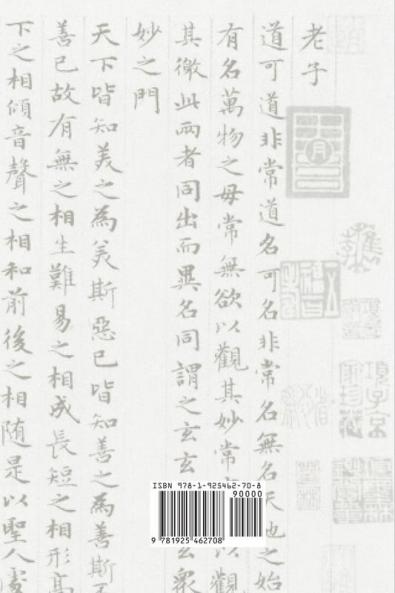 老子
道可道非常道名可名非常名無名天地之始
有名萬物之母常無欲以觀其妙常以觀
其徼此兩者同出而異名同謂之玄玄玄衆
妙之門
天下皆知美之為美斯惡已皆知善之為善斯不
善已故有無之相生難易之相成長短之相形高
下之相傾音聲之相和前後之相随是以聖人處
ISBN 978-1-925462-70-8
90000
9 781925 462708